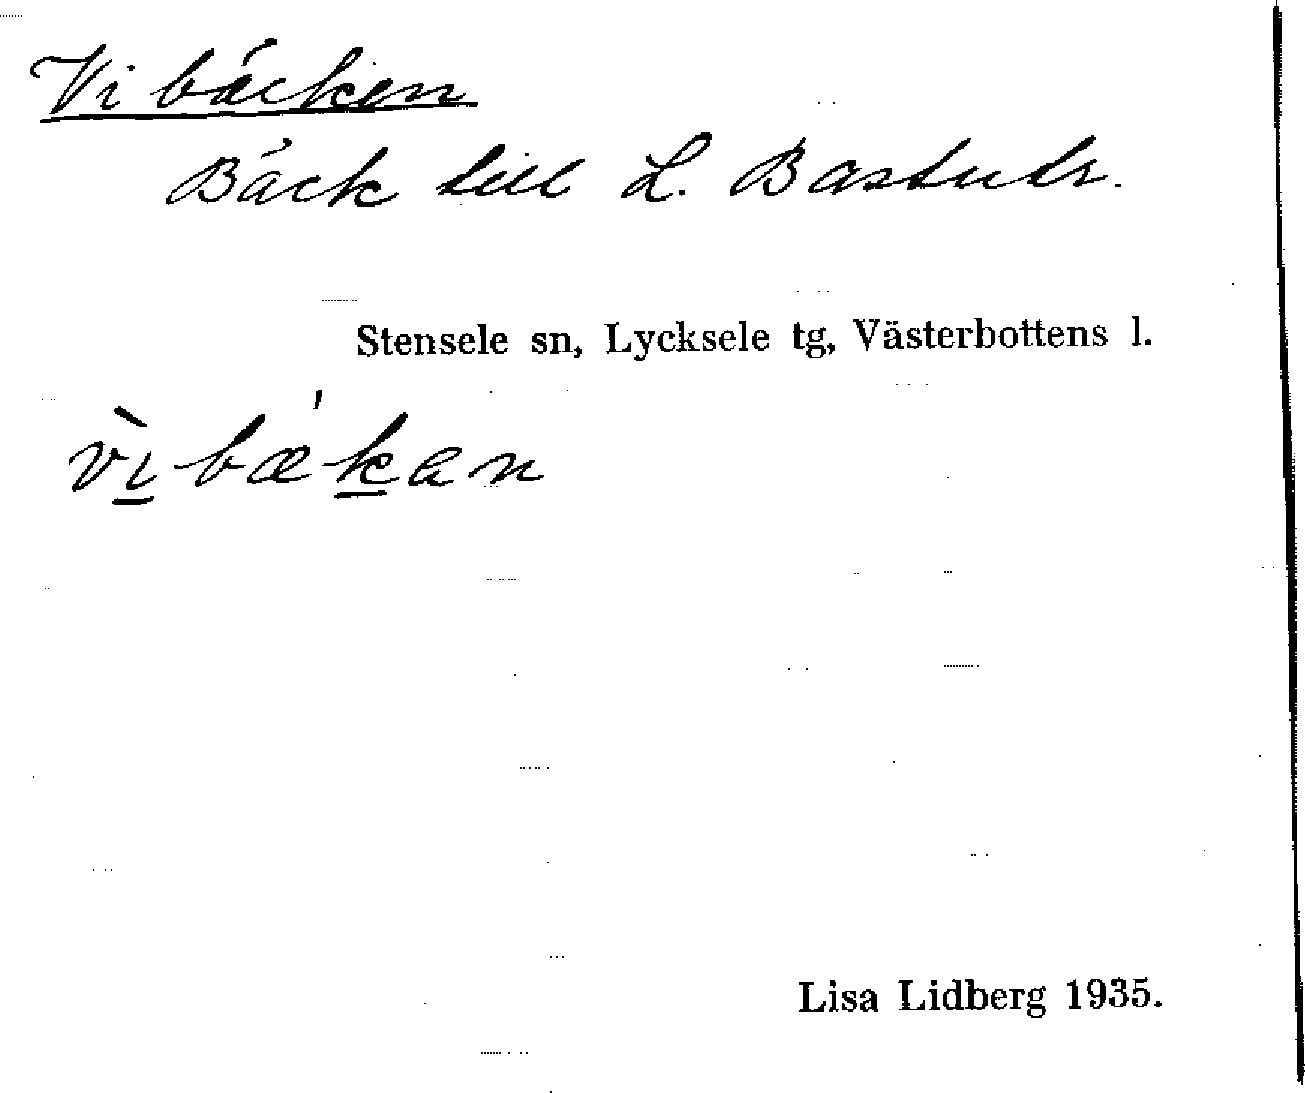 Vibäcken
Bäck till L. Bastutr.
Stensele sn, Lycksele tg, Västerbottens l.
vìbæ'kan
Lisa Lidberg 1935.